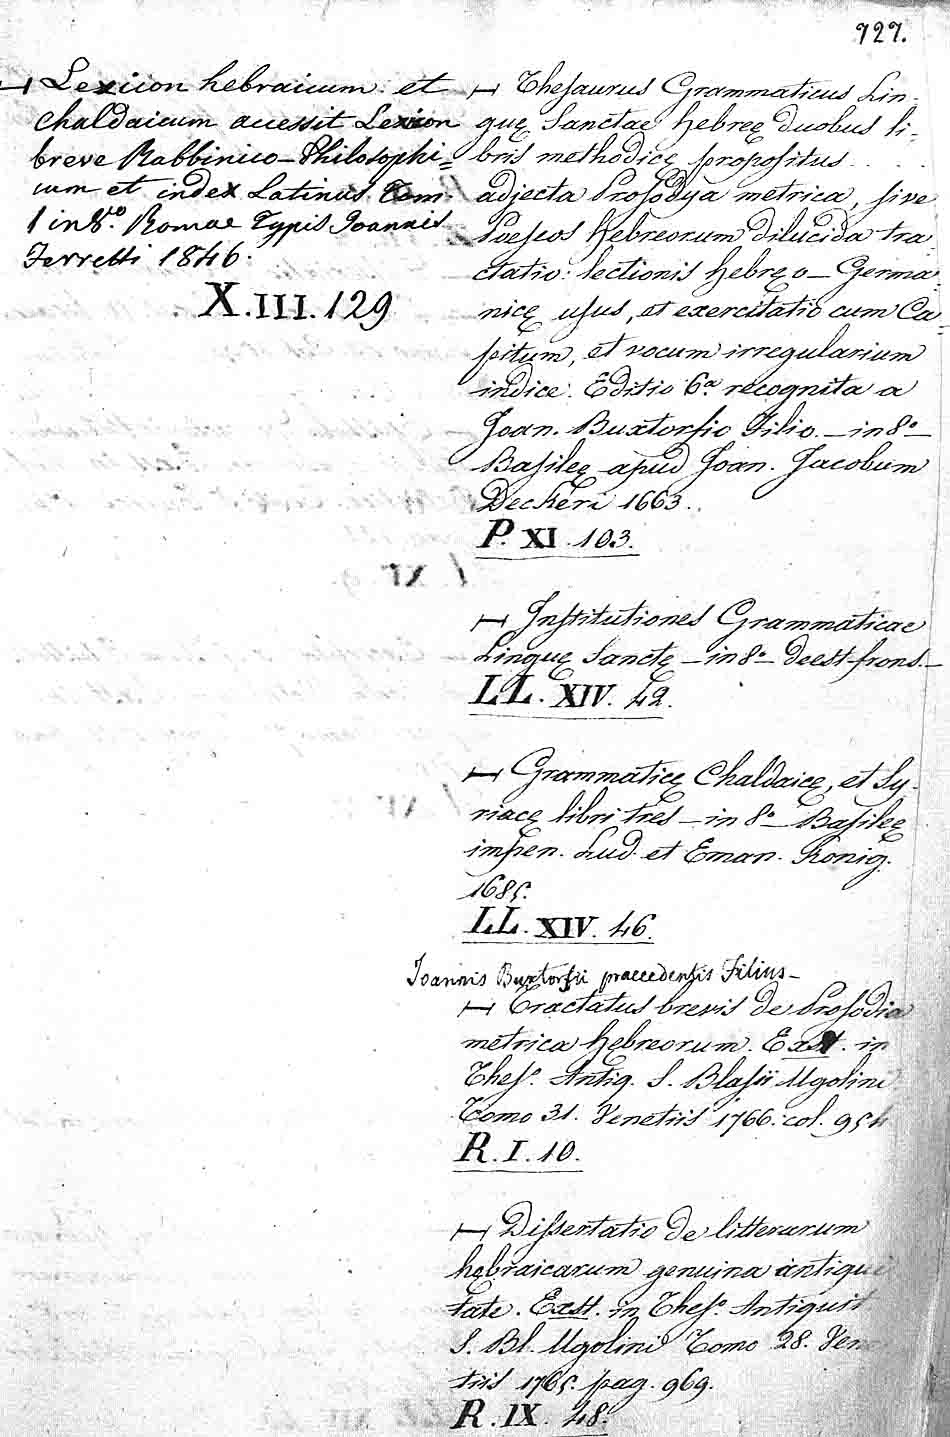 727.
⊢ Lexicon hebraicum et
chaldaicum accessit Lexicon
breve Rabbinico-Philosophi-
cum et index Latinus. Tom.
1 in 8.º Romae Typis Joannis
Ferretti 1846.
X.III.129
⊢ Thesaurus Grammaticus Lin-
guę Sanctae Hebreę duobus li-
bris methodicę propositus....
adjecta Prosodya metrica, sive
Poeseos Hebreorum dilucida tra
ctatio: lectionis hebręo-Germa-
nicę usus, et exercitatio cum Ca-
pitum, et vocum irregularium
indice. Editio 6.a recognita a
Joan. Buxtorfio Filio. - in 8º -
Basileę apud Joan. Jacobum
Deckeri 1663..
P. XI. 103.
⊢ Institutiones Grammaticae
Linguę Sanctę - in 8º - deest frons. -
LL. XIV. 42.
⊢ Grammaticę Chaldaicę, et Sy-
riacę libri tres - in 8º - Basileę
impen. Lud. et Eman. Konig.
1685.
LL. XIV. 46.
Joannis Buxtorfii praecedentis Filius -
⊢ Tractatus brevis de Prosodia
metrica hebreorum. Exst. in
Thes.º Antiq. S. Blasii Ugolini
Tomo 31. Venetiis 1766. col. 954
R. I. 10.
⊢ Dissertatio de litterarum
hebraicarum genuina antiqui
tate. Exst. in Thes.º Antiquit
S. Bl. Ugolini Tomo 28. Vene
tiis 1765. pag. 969.
R. IX. 48.